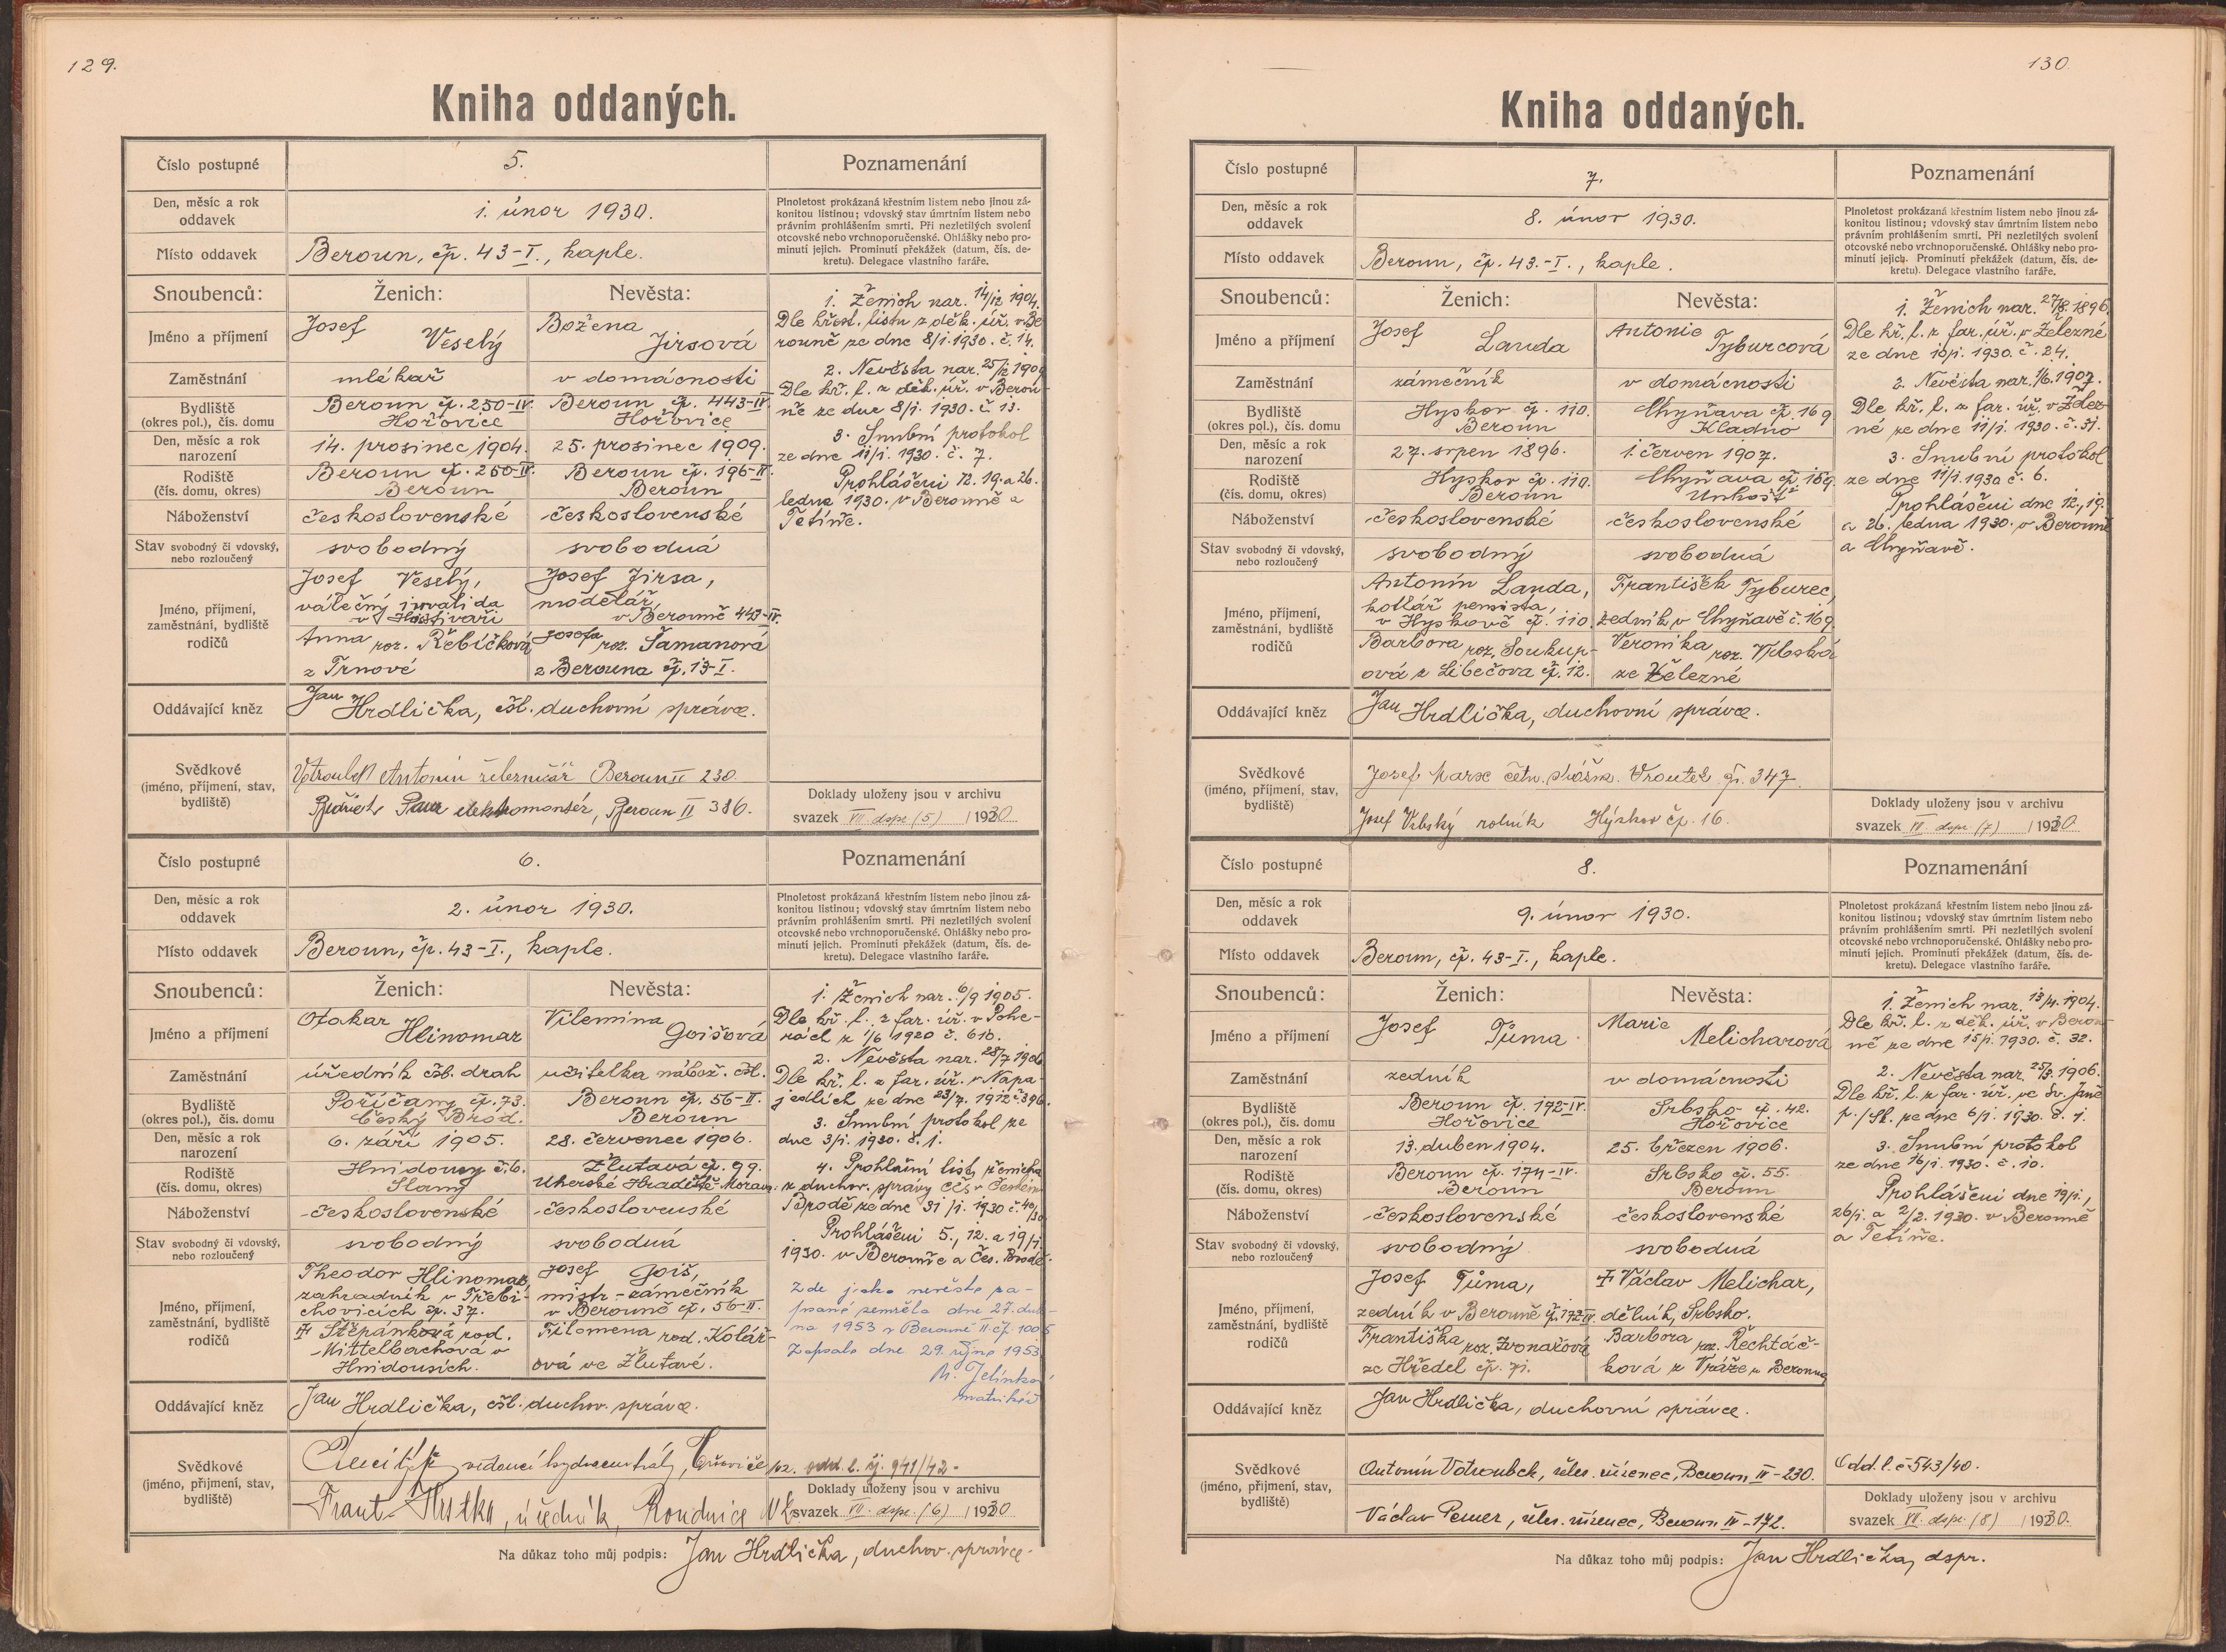 129.
Kniha oddaných.
Číslo postupné
5.
Poznamenání
Den, měsíc a rok
oddavek
1. únor 1930.
Plnoletost prokázaná křestním listem nebo jinou zá-
konitou listinou; vdovský stav úmrtním listem nebo
právním prohlášením smrti. Při nezletilých svolení
otcovské nebo vrchnoporučenské. Ohlášky nebo pro-
minutí jejich. Prominutí překážek (datum, čís. de-
kretu). Delegace vlastního faráře.
Místo oddavek
Beroun, čp. 43-I., kaple.
Snoubenců: Ženich: Nevěsta:
Jméno a příjmení
Josef Veselý
Božena Jirsová
Zaměstnání
mlékař
v domácnosti
Bydliště
(okres pol.), čís. domu
Beroun čp. 250-IV.
Hořovice
Beroun čp. 443-IV.
Hořovice
Den, měsíc a rok
narození
14. prosinec 1904.
25. prosinec 1909.
Rodiště
(čís. domu, okres)
Beroun čp. 250-IV.
Beroun
Beroun čp. 196-II.
Beroun
Náboženství
československé
československé
Stav svobodný či vdovský,
nebo rozloučený
svobodný
svobodná
Jméno, příjmení,
zaměstnání, bydliště
rodičů
Josef Veselý,
válečný invalida
v Hostivaři
Anna roz. Řebíčková
z Trnové
Josef Jirsa,
modelář,
v Berouně 443-IV.
Josefa roz. Šamanová
z Berouna čp. 13-I.
Oddávající kněz
Jan Hrdlička, čsl. duchovní správce.
Svědkové
(jméno, příjmení, stav,
bydliště)
Votroubek Antonín železničář Beroun II 230
elektromontér, Beroun II 386.
1. Ženich nar. 14/12 1904.
Dle křest. listu z děk. úř. v Be
rouně ze dne 8/1. 1930. č. 14.
2. Nevěsta nar. 25/12 1909
Dle kř. l. z děk. úř. v Berou-
ně ze dne 8/1. 1930. č. 13.
3. Snubní protokol
ze dne 11/1. 1930. č. 7.
Prohlášeni 12. 19. a 26.
ledna 1930. v Berouně a
Tetíně.
Doklady uloženy jsou v archivu
svazek VII. dspr. (5) /1930
Číslo postupné
6.
Poznamenání
Den, měsíc a rok
oddavek
2. únor 1930.
Plnoletost prokázaná křestním listem nebo jinou zá-
konitou listinou; vdovský stav úmrtním listem nebo
právním prohlášením smrti. Při nezletilých svolení
otcovské nebo vrchnoporučenské. Ohlášky nebo pro-
minutí jejich. Prominutí překážek (datum, čís. de-
kretu). Delegace vlastního faráře.
Místo oddavek
Beroun, čp. 43-I., kaple.
Snoubenců: Ženich: Nevěsta:
Jméno a příjmení
Otakar Hlinomaz
Vilemina Goišová
Zaměstnání
úředník čsl. drah
učitelka nábož. čsl.
Bydliště
(okres pol.), čís. domu
Poříčany čp. 73.
Český Brod.
Beroun čp. 56-II.
Beroun
Den, měsíc a rok
narození
6. září 1905.
28. červenec 1906.
Rodiště
(čís. domu, okres)
Hnidousy č. 6.
Slaný
Žlutavá čp. 99.
Uherské Hradiště-Morava.
Náboženství
československé
československé
Stav svobodný či vdovský,
nebo rozloučený
svobodný
svobodná
Jméno, příjmení,
zaměstnání, bydliště
rodičů
Theodor Hlinomaz,
zahradník v Třebi-
chovicích čp. 37.
† Štěpánka rod.
Mittelbachova v
Hnidousích.
Josef Goiš,
mistr-zámečník
v Berouně čp. 56-II.
Filomena rod. Kolář-
ová ve Žlutavé.
Oddávající kněz
Jan Hrdlička, čsl. duchov. správce.
Svědkové
(jméno, příjmení, stav,
bydliště)
vedoucí
Frant. Hrstka, úředník, Roudnice
1. Ženich nar. 6/9 1905.
Dle kř. l. z far. úř. v Pche-
rách z 1/6 1920 č. 610.
2. Nevěsta nar. 28/7 1906
Dle kř. l. z far. úř. v Napa-
jedlích ze dne 23/7. 1912 č. 396.
3. Snubní protokol ze
dne 3/1. 1930. č. 1.
4. Prohlašní list ženicha
z duchov. správy CČS v Českém
Brodě ze dne 31/1. 1930 č. 40/30
Prohlášeni 5., 12. a 19/1.
1930. v Berouně a Čes. Brodě.
Zde jako nevěsta za-
psaná zemřela dne 27. dub-
na 1953 v Berouně II. čp. 1005
Zapsala dne 29. října 1953
M. Jelínková
matrikář
odd. l. čj. 941/42.
Doklady uloženy jsou v archivu
svazek VII. dspr. (6) /1930
Na důkaz toho můj podpis: Jan Hrdlička, duchov. správce.
130.
Kniha oddaných.
Číslo postupné
7.
Poznamenání
Den, měsíc a rok
oddavek
8. únor 1930.
Plnoletost prokázaná křestním listem nebo jinou zá-
konitou listinou; vdovský stav úmrtním listem nebo
právním prohlášením smrti. Při nezletilých svolení
otcovské nebo vrchnoporučenské. Ohlášky nebo pro-
minutí jejich. Prominutí překážek (datum, čís. de-
kretu). Delegace vlastního faráře.
Místo oddavek
Beroun, čp. 43.-I., kaple.
Snoubenců: Ženich: Nevěsta:
Jméno a příjmení
Josef Landa
Antonie Tyburcová
Zaměstnání
zámečník
v domácnosti
Bydliště
(okres pol.), čís. domu
Hyskov čp. 110.
Beroun
Chyňava čp. 169
Kladno
Den, měsíc a rok
narození
27. srpen 1896.
1. červen 1907.
Rodiště
(čís. domu, okres)
Hyskov čp. 110.
Beroun
Chyňava čp. 169.
Unhošť
Náboženství
československé
československé
Stav svobodný či vdovský,
nebo rozloučený
svobodný
svobodná
Jméno, příjmení,
zaměstnání, bydliště
rodičů
Antonín Landa,
kotlář pensista,
v Hyskově čp. 110.
Barbora roz. Soukup-
ová z Libečova čp. 12.
František Tyburec,
zedník v Chyňavě č. 169
Veronika roz. Vrbská
ze Železné
Oddávající kněz
Jan Hrdlička, duchovní správce.
Svědkové
(jméno, příjmení, stav,
bydliště)
Josef Marx četn. strážm. Vroutek čp. 347.
Josef Vrbský rolník Hýskov čp. 16.
1. Ženich nar. 27/8. 1896
Dle kř. l. z far. úř. v Železné
ze dne 10/1. 1930. č. 24.
2. Nevěsta nar. 1/6. 1907.
Dle kř. l. z far. úř. v Želez-
né ze dne 11/1. 1930. č. 31.
3. Snubní protokol
ze dne 11/1. 1930 č. 6.
Prohlášeni dne 12., 19.
a 26. ledna 1930. v Berouně
a Chyňavě.
Doklady uloženy jsou v archivu
svazek VII. dspr. (7) /1930
Číslo postupné
8.
Poznamenání
Den, měsíc a rok
oddavek
9. únor 1930.
Plnoletost prokázaná křestním listem nebo jinou zá-
konitou listinou; vdovský stav úmrtním listem nebo
právním prohlášením smrti. Při nezletilých svolení
otcovské nebo vrchnoporučenské. Ohlášky nebo pro-
minutí jejich. Prominutí překážek (datum, čís. de-
kretu). Delegace vlastního faráře.
Místo oddavek
Beroun, čp. 43-I., kaple.
Snoubenců: Ženich: Nevěsta:
Jméno a příjmení
Josef Tůma
Marie Melicharová
Zaměstnání
zedník
v domácnosti
Bydliště
(okres pol.), čís. domu
Beroun čp. 172-IV.
Hořovice
Srbsko čp. 42.
Hořovice
Den, měsíc a rok
narození
13. duben 1904.
25. březen 1906.
Rodiště
(čís. domu, okres)
Beroun čp. 174-IV.
Beroun
Srbsko čp. 55.
Beroun
Náboženství
československé
československé
Stav svobodný či vdovský,
nebo rozloučený
svobodný
svobodná
Jméno, příjmení,
zaměstnání, bydliště
rodičů
Josef Tůma,
zedník v Berouně čp. 172 IV.
Františka roz. Zvonařová
ze Hředel čp. 71.
† Václav Melichar,
dělník, Srbsko.
Barbora roz. Řechtáč-
ková z Vráže u Berouna
Oddávající kněz
Jan Hrdlička, duchovní správce.
Svědkové
(jméno, příjmení, stav,
bydliště)
Antonín Votroubek, želez. zřízenec, Beroun II-230.
Václav Perner, želez. zřízenec, Beroun IV-172.
1. Ženich nar. 13/4. 1904.
Dle kř. l. z děk. úř. v Berou-
ně ze dne 15/1. 1930. č. 32.
2. Nevěsta nar. 25/3. 1906.
Dle kř. l. z far. úř. ve Sv. Janě
p./Sk. ze dne 6/1. 1930. č. 1.
3. Snubní protokol
ze dne 16/1. 1930. č. 10.
Prohlášeni dne 19/1.,
26/1. a 2/2. 1930. v Berouně
a Tetíně.
Odd. l. č 543/40.
Doklady uloženy jsou v archivu
svazek VII. dspr. (8) /1930.
Na důkaz toho můj podpis: Jan Hrdlička, dspr.